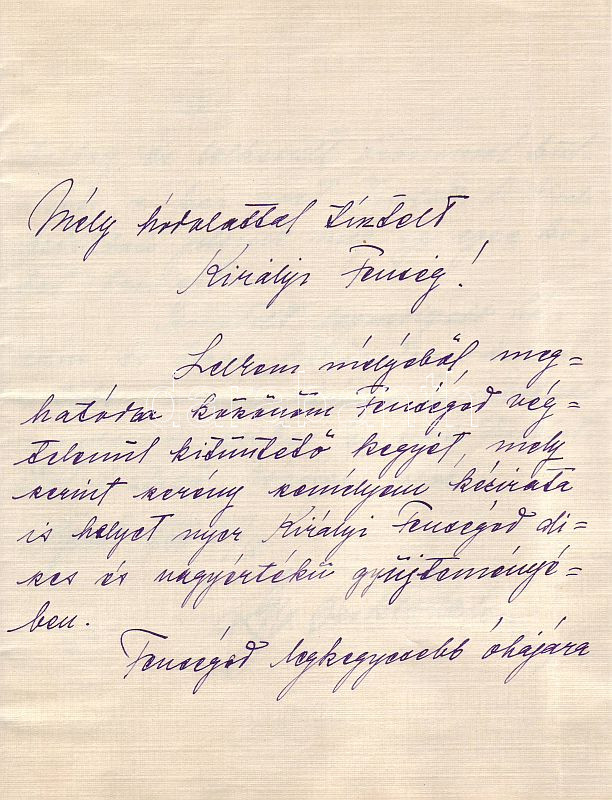 Mély hódolattal tisztelt
Királyi Fenség!
Lelkem mélyéből, meg=
hatódva köszönöm Fenséged vég=
telenül kitüntető kegyét, mely
szerint szerény személyem kézirata
is helyet nyer Királyi Fenséged dí=
szes és nagyértékű gyűjteményé=
ben.
Fenséged legkegyesebb óhajára